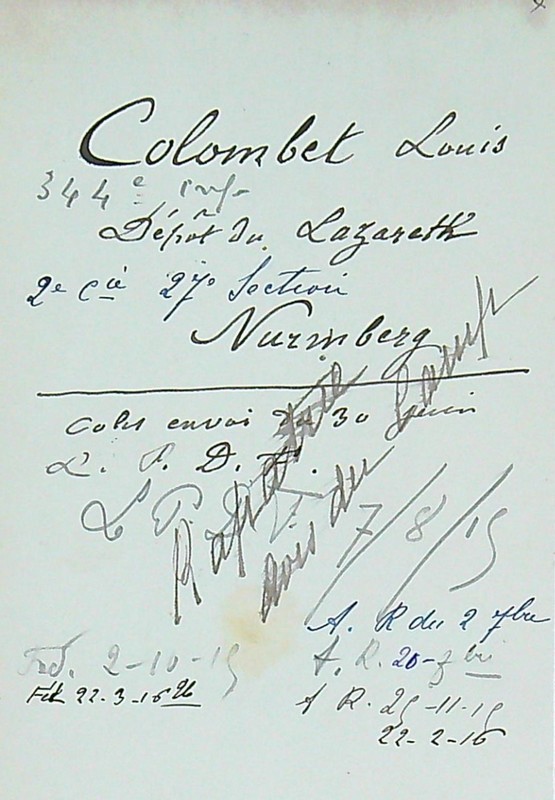 Colombet Louis
344e inf
Dépôt du Lazareth
2e Cie 27e Section
Nurimberg
Colis envoi du 30 Juin
L. P. D. F.
L P
Rapatrié
avis du Camp
7/8/15
A. R du 2 7bre
A. R. 20-7bre
Fid. 2-10-15
Fid 22-3-16
A R. 25-11-15
22-2-16